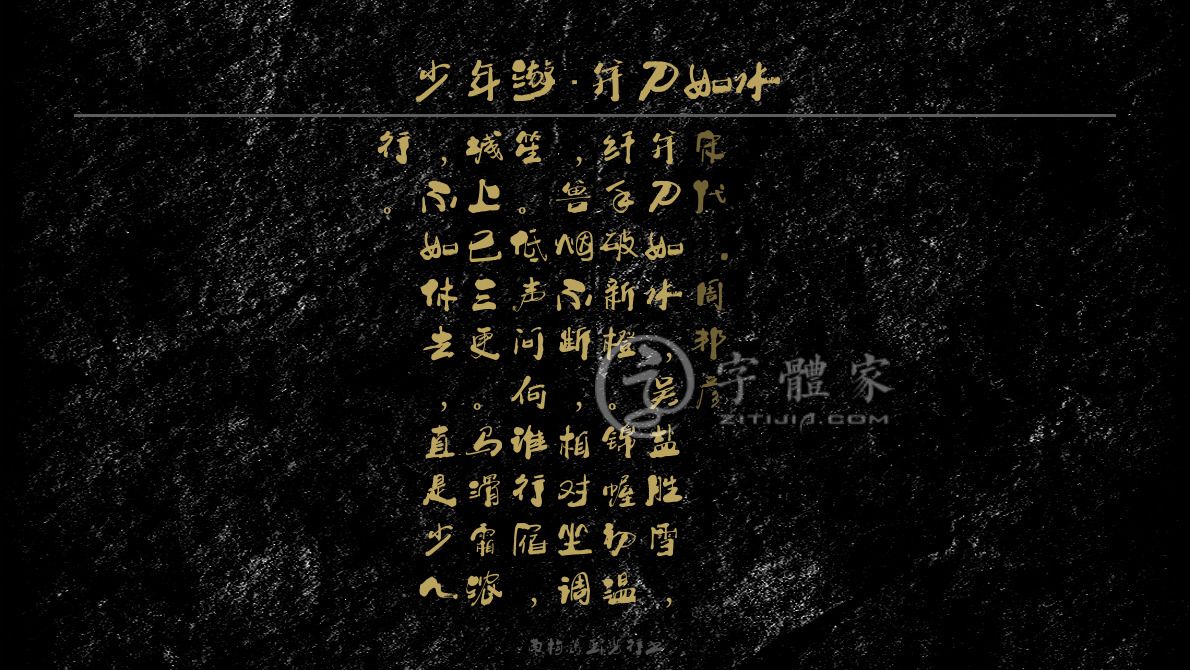 少年游·并刀如水
宋代.周邦彦
并刀如水，吴盐胜雪，
纤手破新橙。锦幄初温
，兽烟不断，相对坐调
笙。低声问向谁行宿，
城上已三更。马滑霜浓
，不如休去，直是少人
行。
字體家
ZITIJIA.COM